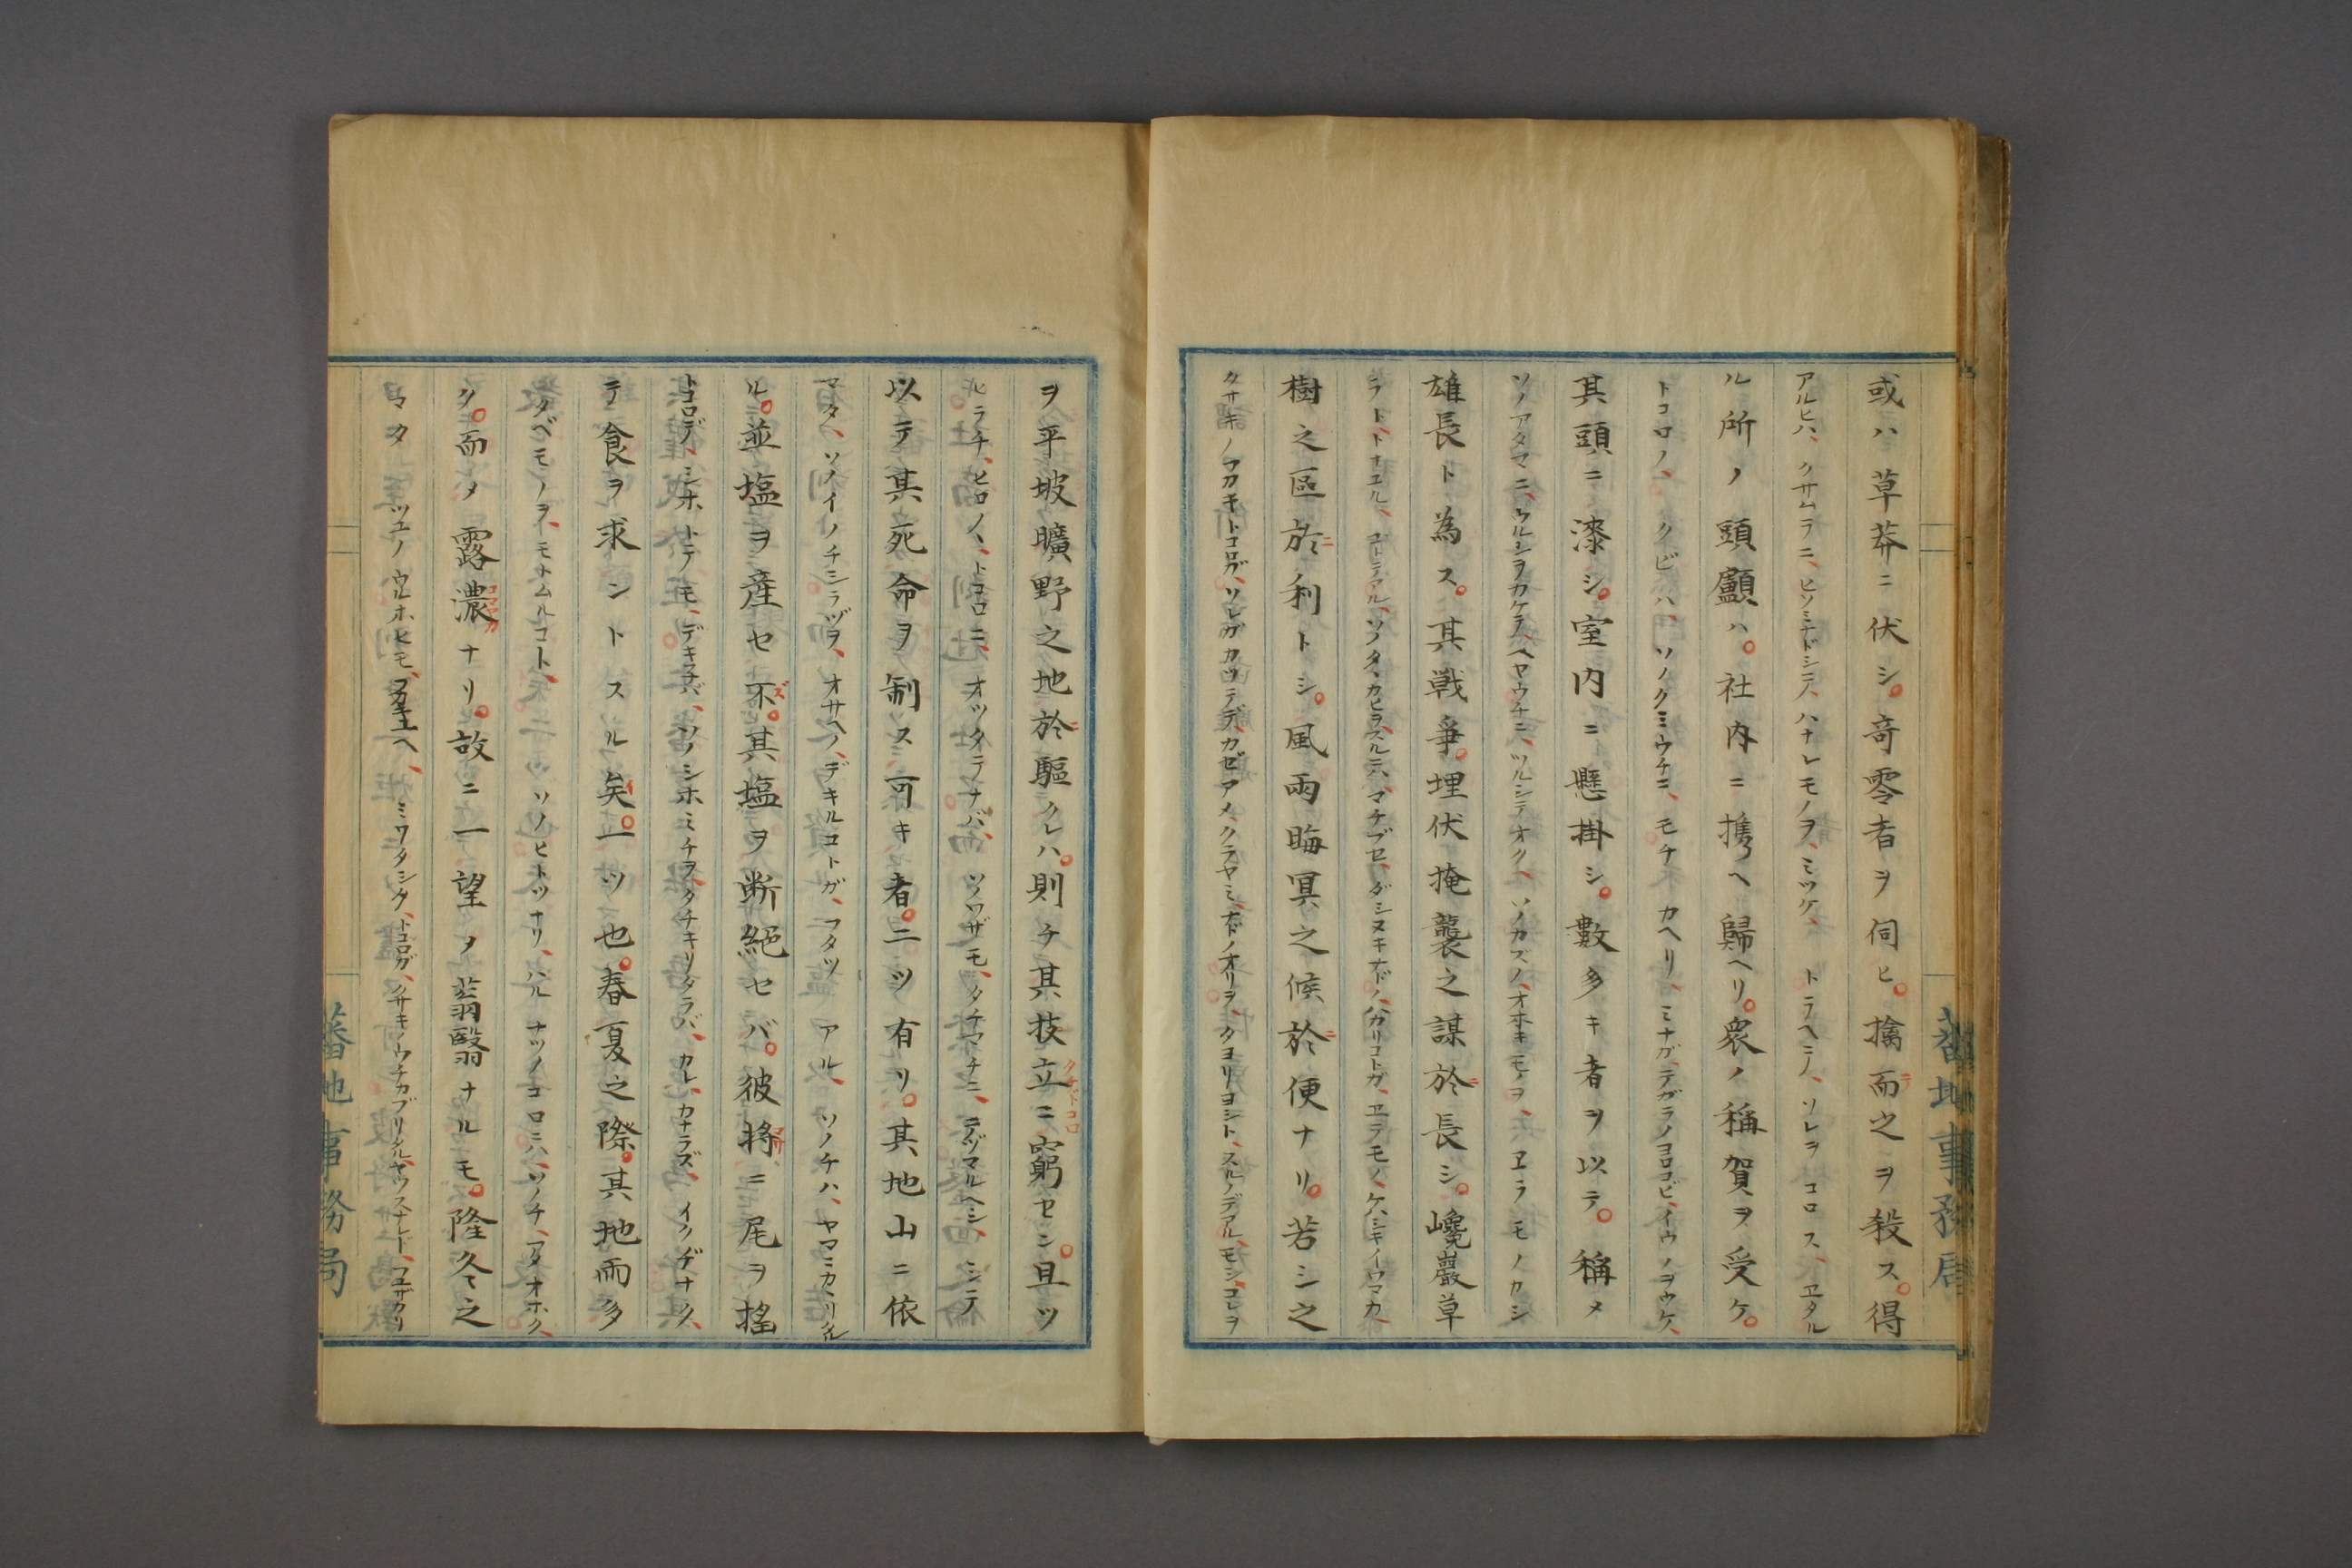 或ハ草莽ニ伏シ。奇零者ヲ伺ヒ。擒而テ之ヲ殺ス。得
アルヒハ、クサムラニ、ヒソミナドシテ、ハナレモノヲ、ミツケ、トラヘテ、ソレヲコロス、ヱタル
ル所ノ頭顱ハ。社内ニ携ヘ歸ヘリ。衆ノ稱賀ヲ受ケ。
トコロノ、クビハ、ソノクミウチニ、モチカヘリ、ミナガ、テガラノヨロコビ、イウノヲウケ、
其頭ニ漆シ。室内ニ懸掛シ。數多キ者ヲ以テ。稱メ
ソノアタマニ、ウルシヲカケテ、ヘヤウチニ、ツルシテオク、ソノカズノ、オホキモノヲ、ヱラモノカシ
雄長ト為ス。其戦爭。埋伏掩襲之謀於ニ長シ。巉巖草
ラト、トナエル、マチブセ、ダシヌキナドノ、ハカリコトガ、ヱテモノ、ケハシキイワマカ、
樹之區於ニ利トシ。風雨晦冥之候於ニ便ナリ。若シ之
クサキノフカキトコロガ、ソレガカツテデ、カゼアメ、クラヤミ、ナドノオリヲ、タヨリヨシト、スルノデアル、モシ、コレヲ
蕃地事務局
ヲ平坡曠野之地於ニ驅クレハ。則チ其技立ニ窮セン。且ツ
ヒラチ、ヒロノ、トコロニ、オツタテナバ、ソノワザモ、タチマチニ、
以テ其死命ヲ制ス可キ者。二ツ有リ。其地山ニ依
マタ、ソノイノチシラヅヲ、オサヘノ、デキルコトガ、フタツアル、ソノチハ、ヤマニカヽリタル
ル。並塩ヲ産セ不ズ。其塩ヲ断絶セバ。彼將ニ尾ヲ搖
トコロデ、シホトテモ、デキネバ、ソノシホミチヲ、タチキリタラバ、カレ、カナラズ、
テ食ヲ求ントスル矣。一ツ也。春夏之際。其地雨多
タベモノヲ、モトムルコト、ソノヒトツナリ、ハルナツノコロニハ、ソノチ、アメオホク、
ク。而メ露濃ナリ。故ニ一望ノ蓊翳ナルモ。隆冬之
マタツユノウルホヒモ、ミワタシタ、トコロガ、クサキノウチカブリタル、ヤウスナレド、フユザカリ
蕃地事務局